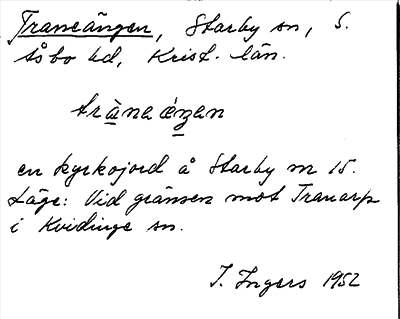 Traneängen, Starby sn, S.
Åsbo hd, Krist. län.
tràna ǽŋan
en kyrkojord å Starby nr 15.
Läge: Vid gränsen mot Tranarp
i Kvidinge sn.
I. Ingers 1952